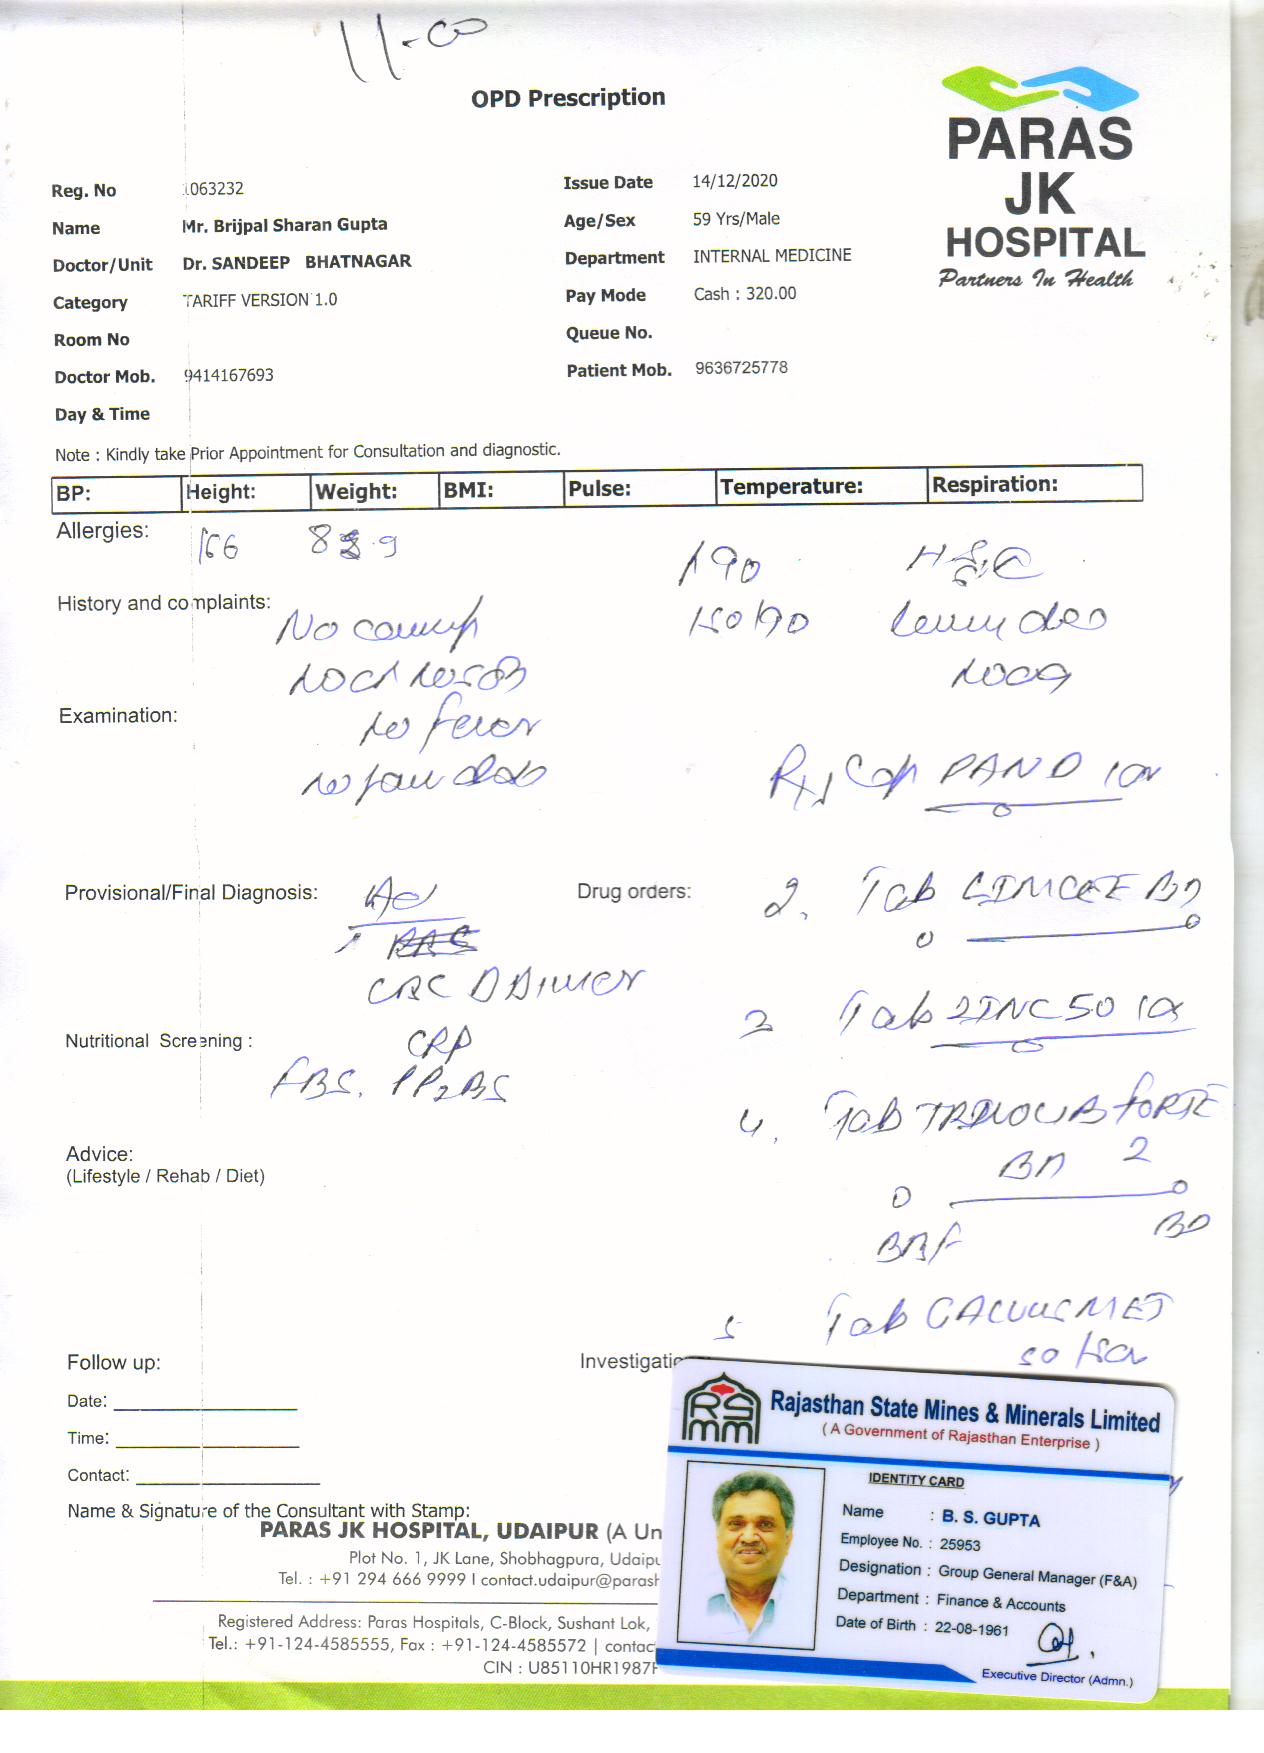 11-00
OPD Prescription
PARAS
JK
HOSPITAL
Partners In Health
Reg. No 1063232
Name Mr. Brijpal Sharan Gupta
Doctor/Unit Dr. SANDEEP BHATNAGAR
Category TARIFF VERSION 1.0
Room No
Doctor Mob. 9414167693
Day & Time
Issue Date 14/12/2020
Age/Sex 59 Yrs/Male
Department INTERNAL MEDICINE
Pay Mode Cash : 320.00
Queue No.
Patient Mob. 9636725778
Note : Kindly take Prior Appointment for Consultation and diagnostic.
BP: Height: Weight: BMI: Pulse: Temperature: Respiration:
Allergies:
166
190
History and complaints:
No
150/90
Examination:
no fever
Cap PAN D
Provisional/Final Diagnosis:
Drug orders:
2. Tab LIMCEE BD
CBC D Dimer
3 Tab ZINC 50
Nutritional Screening :
CRP
FBS,
4. Tab FORTE
BD
BBF
BD
Advice:
(Lifestyle / Rehab / Diet)
5 Tab GALVUS MET
50
Follow up:
Date:
Time:
Contact:
Name & Signature of the Consultant with Stamp:
PARAS JK HOSPITAL, UDAIPUR (A Un
Plot No. 1, JK Lane, Shobhagpura, Udaipu
Tel. : +91 294 666 9999 I contact.udaipur@parash
Registered Address: Paras Hospitals, C-Block, Sushant Lok,
Tel.: +91-124-4585555, Fax : +91-124-4585572 | contac
CIN : U85110HR1987P
Investigati
RSMM
Rajasthan State Mines & Minerals Limited
( A Government of Rajasthan Enterprise )
IDENTITY CARD
Name : B. S. GUPTA
Employee No. : 25953
Designation : Group General Manager (F&A)
Department : Finance & Accounts
Date of Birth : 22-08-1961
Executive Director (Admn.)